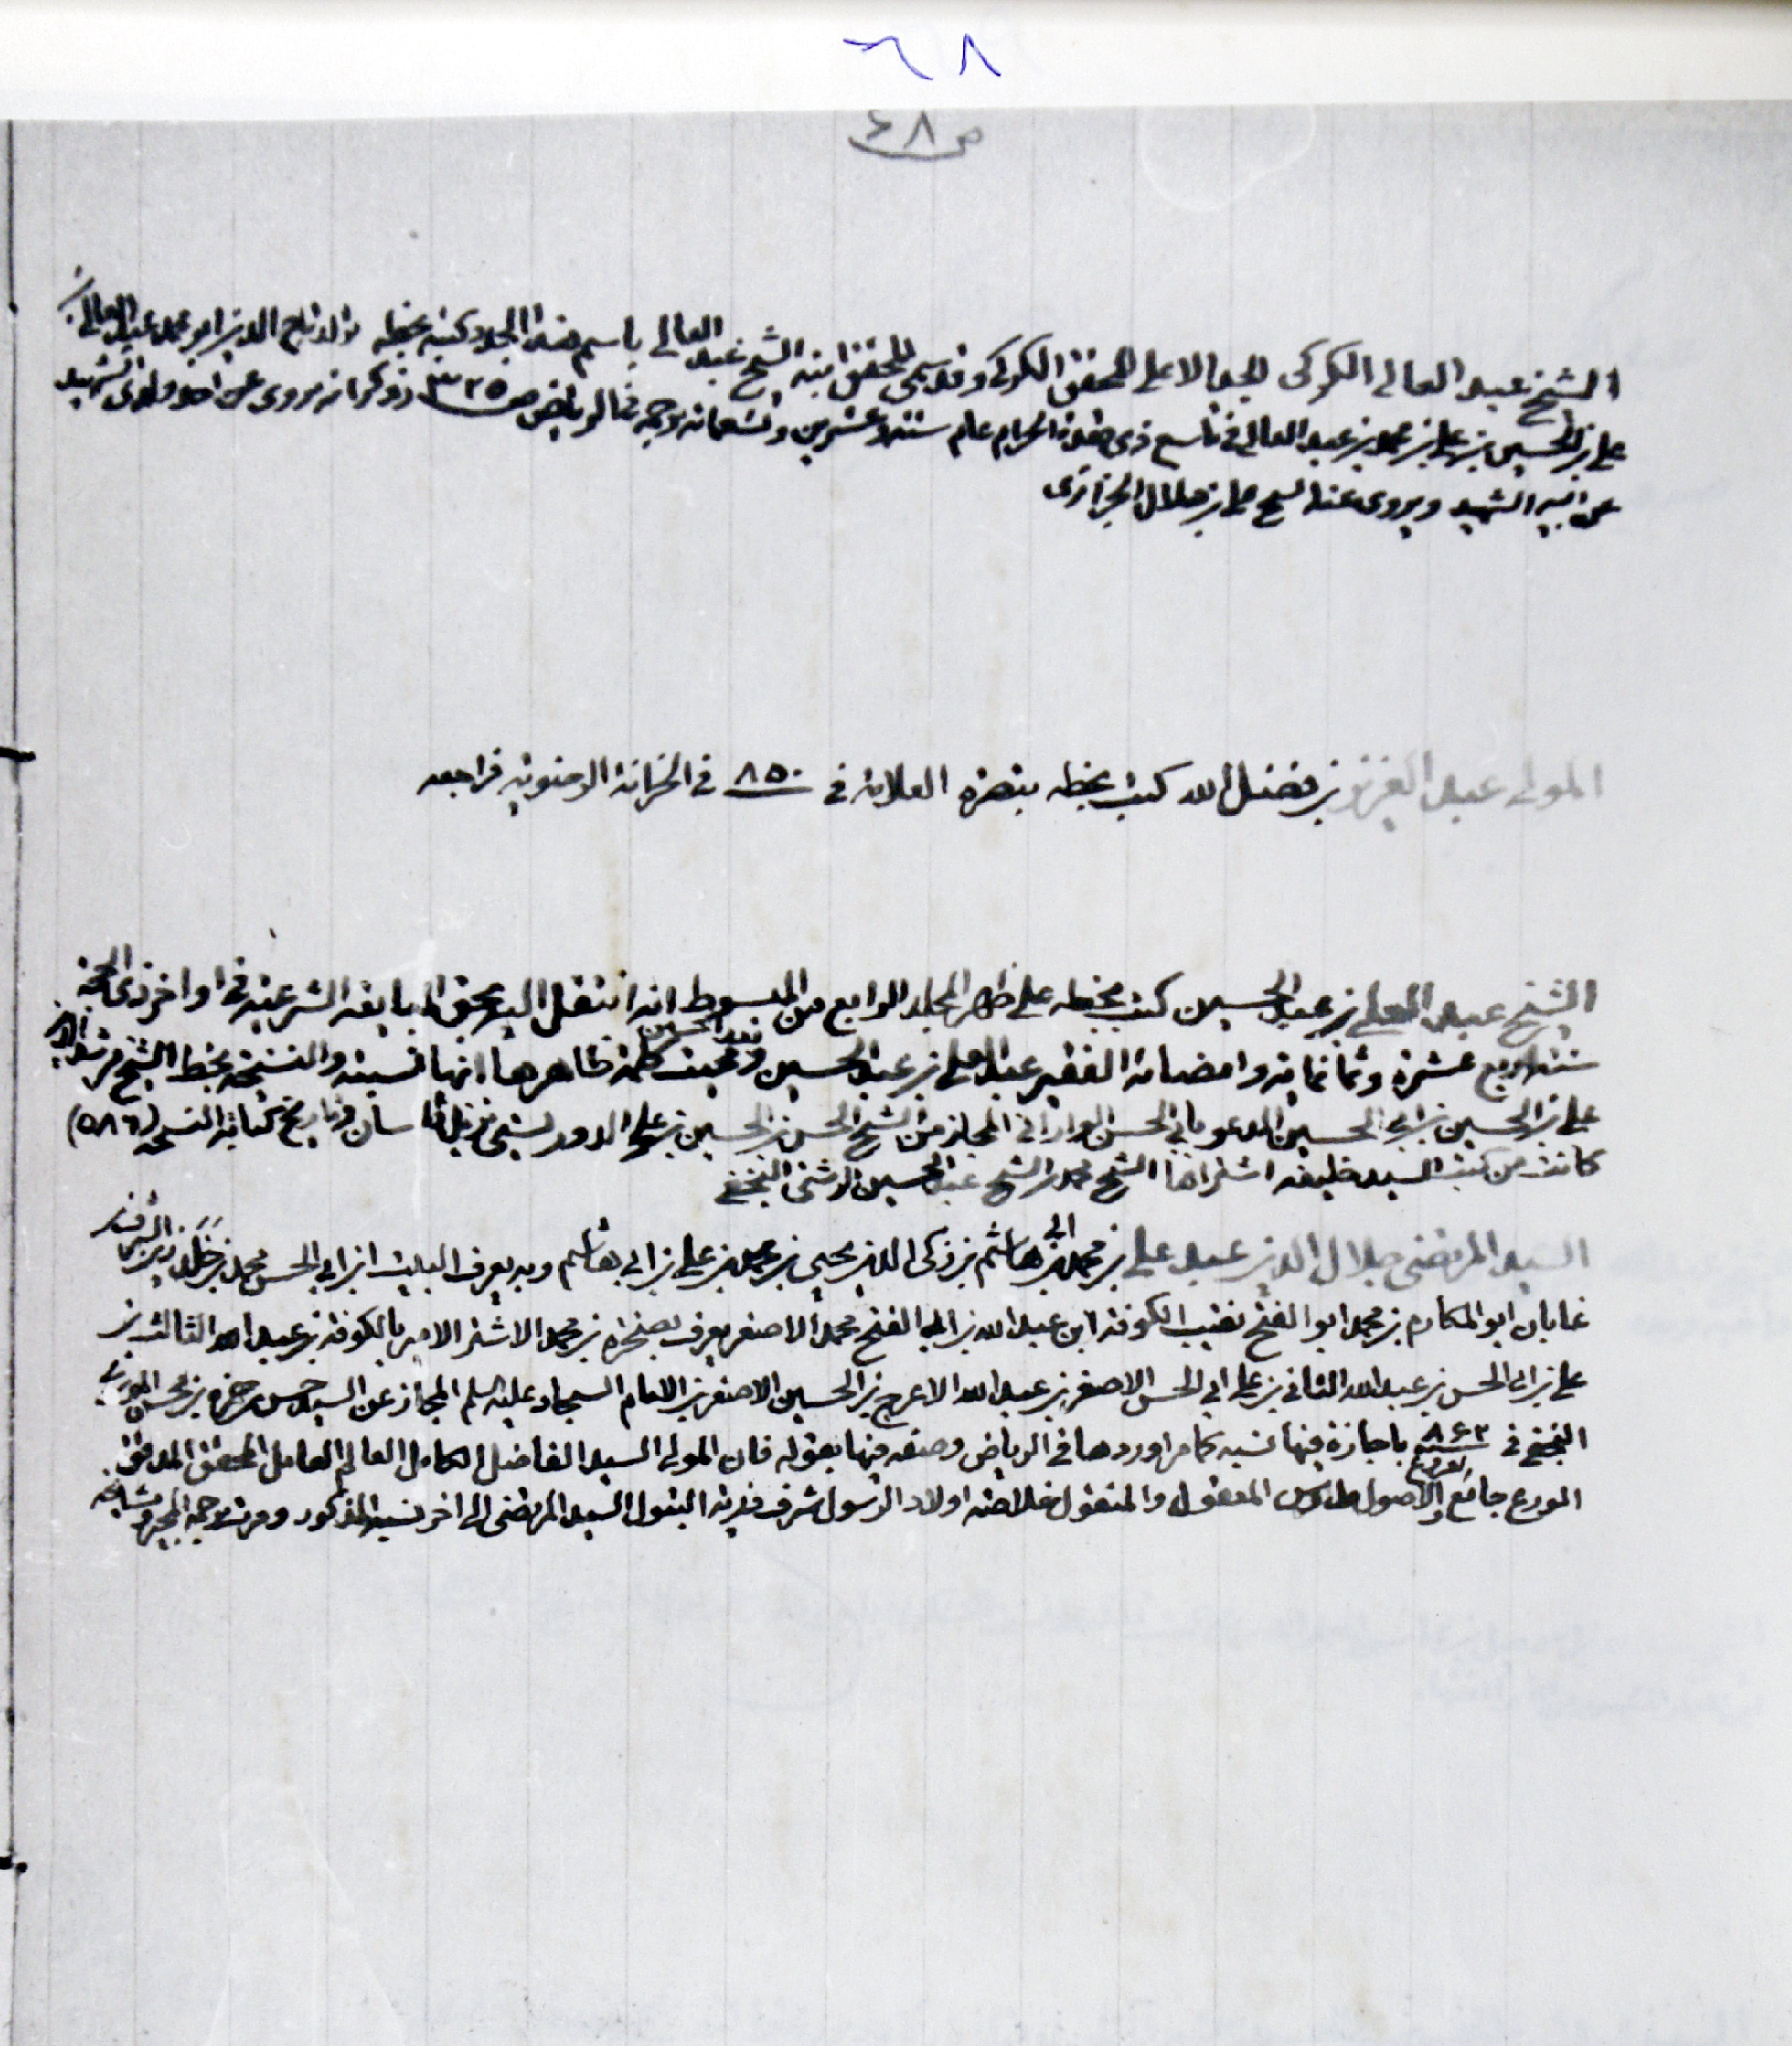 ٦٨
ص ٤٨
الشيخ عبد العالي الكركي الجد الاعلى للمحقق الكركي وقد سمى المحقق ابنه الشيخ عبد العالي باسم هذا الجد وكتبه بخطه تاج الدين ابو محمد عبد العالي بن
علي بن الحسين بن علي بن محمد بن عبد العالي في تاسع ذي قعدة الحرام عام ستة وعشرين وتسعمائة ترجمه في الرياض ص ٣٢٥ وذكر انه يروي عن احد ولدى الشهيد
عن ابيه الشهيد ويروي عنه الشيخ علي بن هلال الجزائري
المولى عبد العزيز بن فضل الله كتب بخطه تبصرة العلامة في ٨٥٠ في الخزانة الرضوية فراجعه
الشيخ عبد العلي بن عبد الحسين كتب بخطه على ظهر المجلد الرابع من المبسوط انه انتقل اليه بحق المبايعة الشرعية في اواخر ذي الحجة
سنة اربع عشرة وثمانمائة وامضائه الفقير عبد العلي بن عبد الحسين وبعد الحسين كلمة ظاهرها انها نسبته والنسخة بخط الشيخ مرشد الدين
علي بن الحسين بن ابي الحسين المدعو بابي الحسن الوارانى المجاز من الشيخ الحسن بن الحسين بن علي الدوريستي نزيل قاسان وتاريخ كتابة النسخة (٥٨٦)
كانت من كتب السيد خليفه اشتراها الشيخ محمد بن الشيخ عبد الحسين الرشتي النجفي
السيد المرتضى جلال الدين عبد علي بن محمد بن ابي هاشم بن زكى الدين يحيى بن محمد بن علي بن ابي هاشم وبه يعرف البيت ابن ابي الحسن محمد بن
غايات ابو المكارم بن محمد ابو الفتح نقيب الكوفة ابن عبد الله بن ابي الفتح محمد الاصغر يعرف بصخرة بن محمد الاشتر الامير بالكوفة بن عبيد الله الثالث بن
علي بن ابي الحسن بن عبد الله الثاني بن علي ابي الحسن الاصغر بن عبد الله الاعرج بن الحسين الاصغر بن الامام السجاد عليه السلم المجاز عن السيد حسن بن حمزة بن محسن الموسوي
النجفي في ٨٦٢ باجازة فيها نسبه كما مر اوردها في الرياض وصفه فيها بقوله فان المولى السيد الفاضل الكامل العالم العامل المحقق المدقق
الورع جامع الفروع والاصول المعقول والمنقول خلاصة اولاد الرسول شرف ذرية البتول السيد المرتضى الى اخر نسبه المذكور ومرت ترجمة المجيز ومشايخه